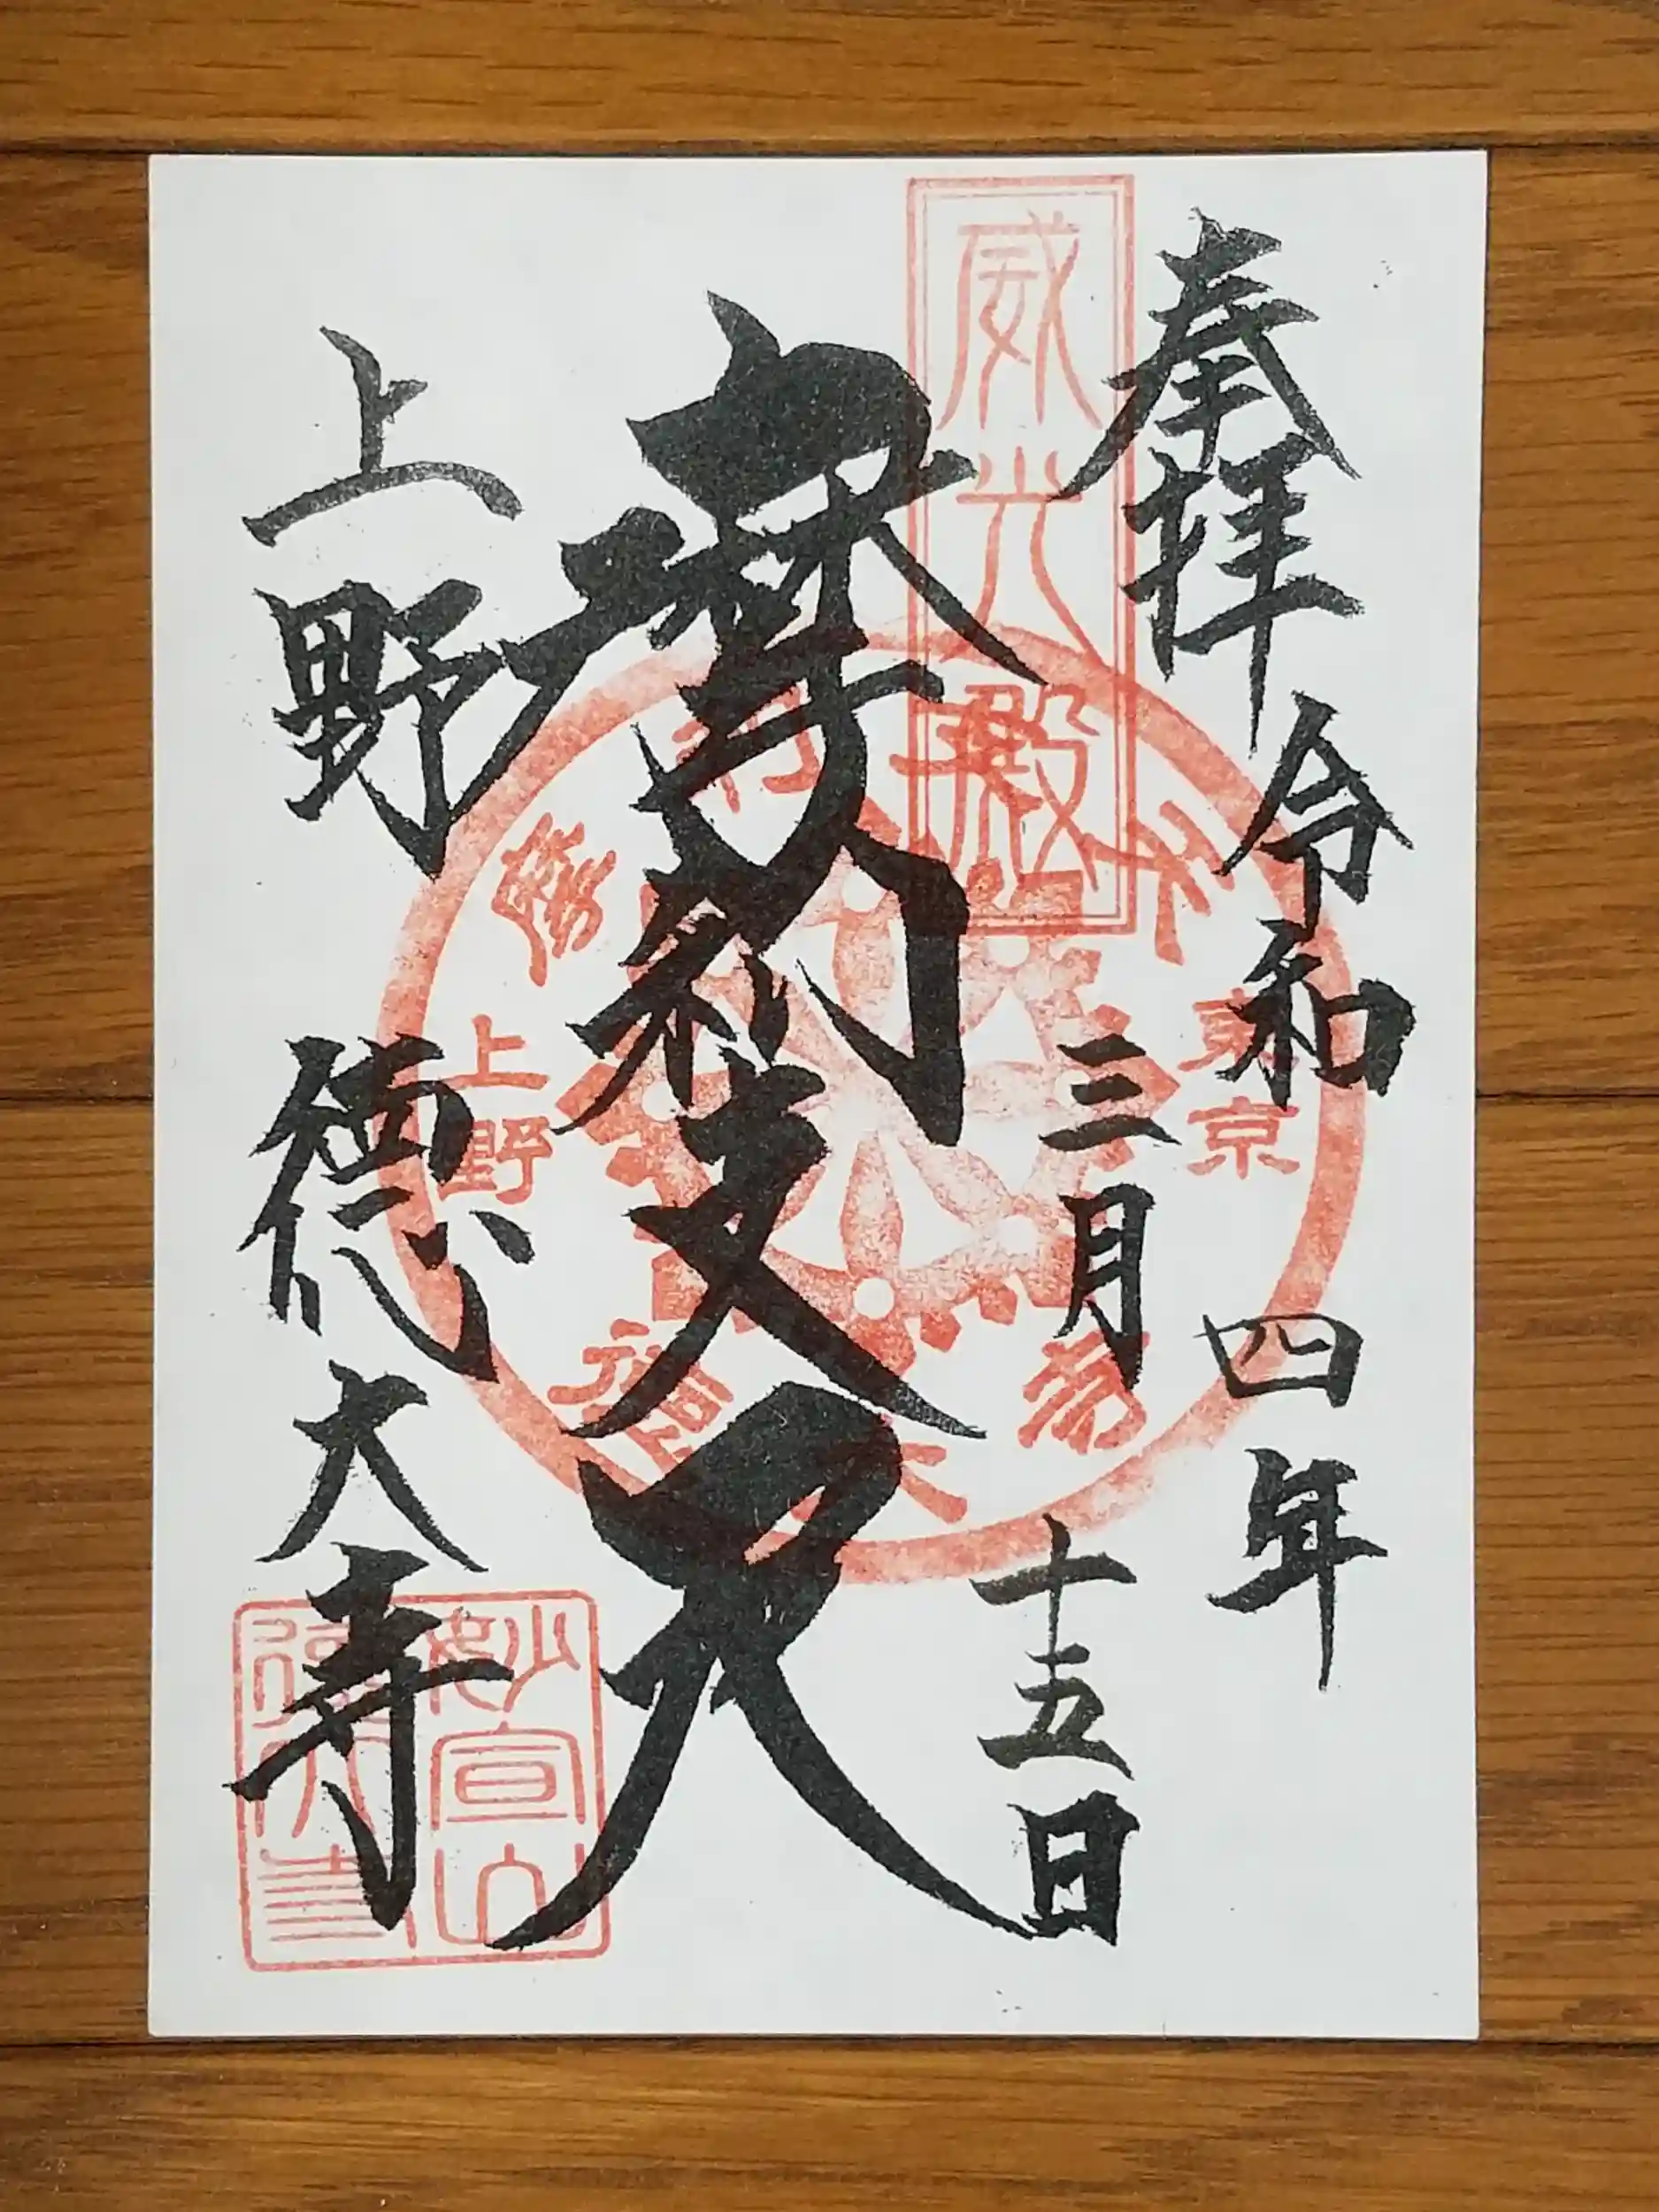 奉拝 令和四年
三月十五日
威光殿
摩利支天
上野 徳大寺
東京
上野
妙宣山
徳大寺